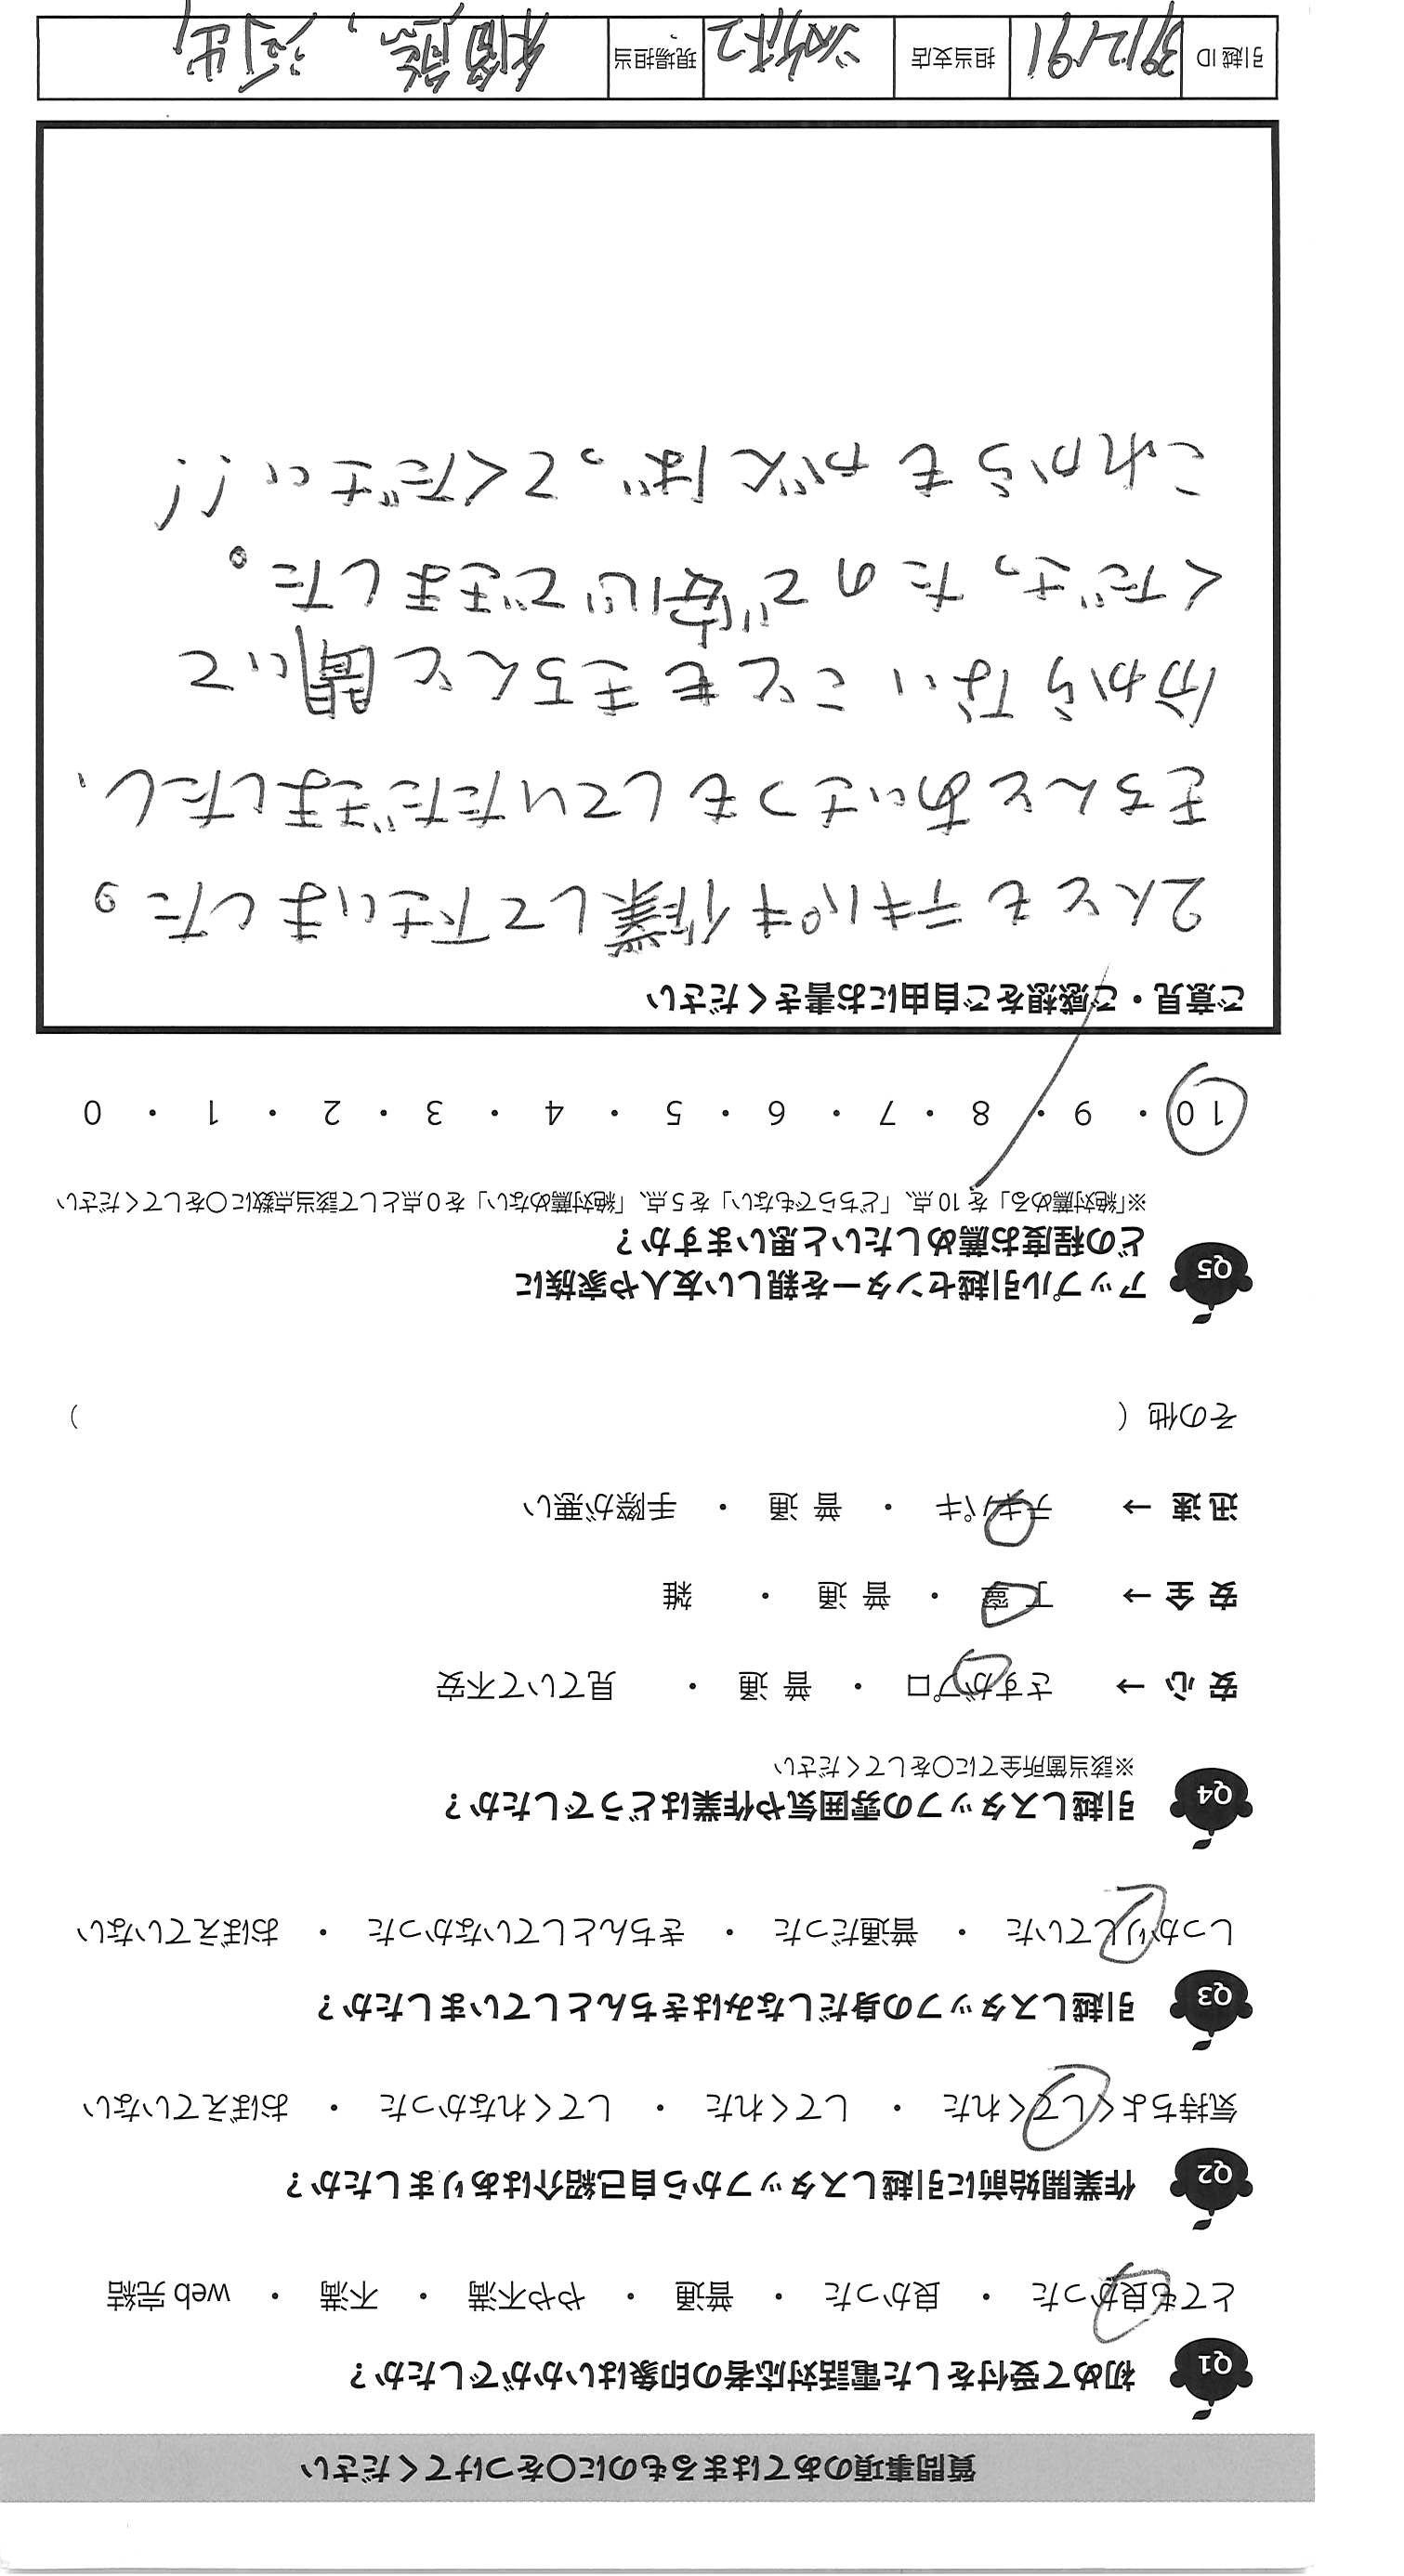 質問事項のあてはまるものに〇をつけてください
Q1 初めて受付をした電話対応者の印象はいかがでしたか？
とても良かった ・ 良かった ・ 普通 ・ やや不満 ・ 不満 ・ web 完結
Q2 作業開始前に引越しスタッフから自己紹介はありましたか？
気持ちよくしてくれた ・ してくれた ・ してくれなかった ・ おぼえていない
Q3 引越しスタッフの身だしなみはきちんとしていましたか？
しっかりしていた ・ 普通だった ・ きちんとしていなかった ・ おぼえていない
Q4 引越しスタッフの雰囲気や作業はどうでしたか？
※該当箇所全てに〇をしてください
安 心 → さすがプロ ・ 普 通 ・ 見ていて不安
安 全 → 丁 寧 ・ 普 通 ・ 雑
迅 速 → テキパキ ・ 普 通 ・ 手際が悪い
その他（ ）
Q5 アップル引越センターを親しい友人や家族に
どの程度お薦めしたいと思いますか？
※「絶対薦める」を 10 点、「どちらでもない」を 5 点、「絶対薦めない」を 0 点として該当点数に〇をしてください
10 ・ 9 ・ 8 ・ 7 ・ 6 ・ 5 ・ 4 ・ 3 ・ 2 ・ 1 ・ 0
ご意見・ご感想をご自由にお書きください
2人ともテキパキ作業して下さいました。
きちんとあいさつもしていただきましたし、
分からないこともきちんと聞いて
くださったので安心できました。
これからもがんばってください!!
引越 ID 3912191 担当支店 現場担当